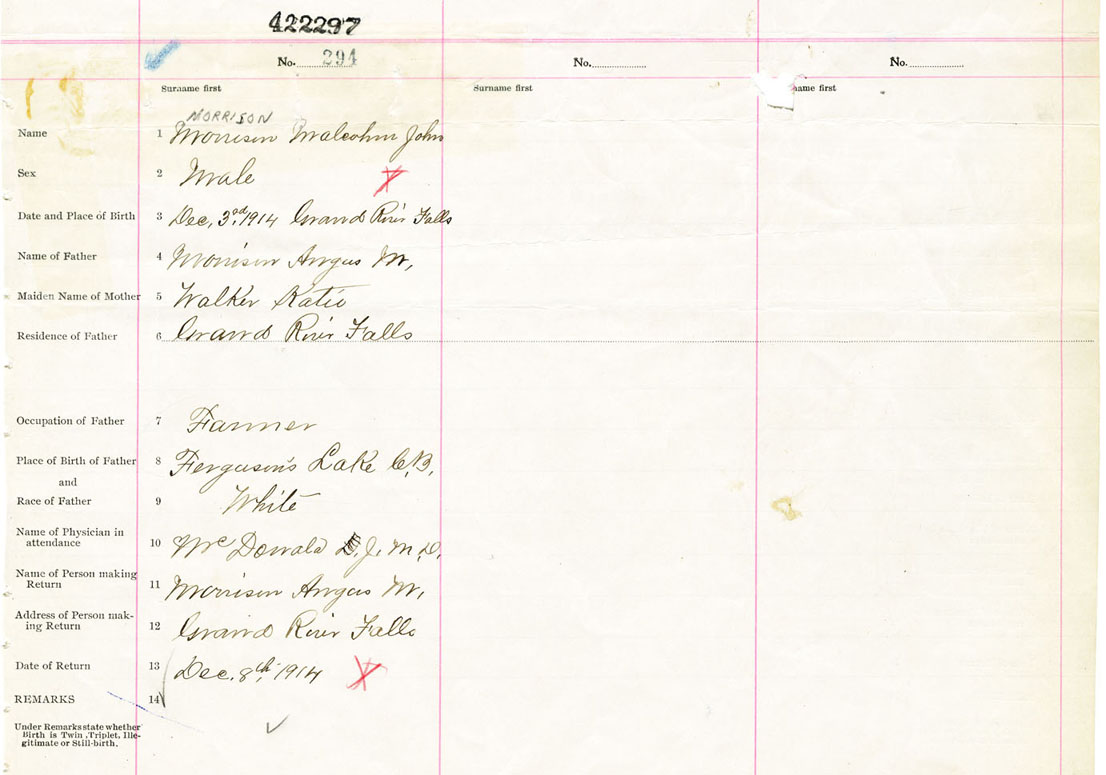 422297
No. 294 No. No.
Surname first Surname first ame first
MORRISON
Name 1 Morrison Malcolm John
Sex 2 Male
Date and Place of Birth 3 Dec, 3rd, 1914 Grand River Falls
Name of Father 4 Morrison Angus M,
Maiden Name of Mother 5 Walker Katie
Residence of Father 6 Grand River Falls
Occupation of Father 7 Farmer
Place of Birth of Father 8 Ferguson's Lake C,B,
and
Race of Father 9 White
Name of Physician in
attendance 10 Mc Donald J. M.D.
Name of Person making
Return 11 Morrison Angus M,
Address of Person mak-
ing Return 12 Grand River Falls
Date of Return 13 Dec. 8th, 1914
REMARKS 14
Under Remarks state whether
Birth is Twin, Triplet, Ille-
gitimate or Still-birth.